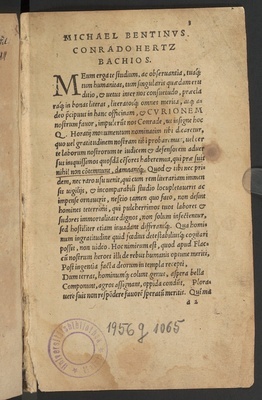 3
MICHAEL BENTINVS.
CONRADO HERTZ
BACHIOS.
MEum erga te studium, ac obseruantia, tuaq́;
tum humanitas, tum singularis quædam eru
ditio, & uetus inter nos consuetudo, præcla
raq́; in bonas literas, literatosq́; omnes merita,
deo præcipuè in hanc officinam, & CVRIONEM
nostrum fauor, impulerunt nos Conrade, ut insigne hoc
Q. Horatij monumentum nominatim tibi dicaretur,
quo uel gratitudinem nostram tibi probaremus, uel cer
te laborum nostrorum te iudicem & defensorem aduer
sus iniquissimos quosdā cēsores haberemus, qui præ suis
nihil non cōtemnunt, damnantq́;. Quod & tibi nec pri
dem, nec raro usu uenit, qui cum rem literariam immen
sis uigilijs, & incomparabili studio locupletaueris ac
impense ornaueris, nescio tamen quo faro, non desint
homines teterrimi, qui pulcherrimos tuos labores &
sudores immortalitate dignos, non solum insectentur,
sed hostiliter etiam inuadant differantq́;. Qua homi
num ingratitudine quid fœdius detestabiliusq́; cogitari
possit, non uideo. Hoc nimirum est, quod apud Flac-
cū nostrum heroes illi de rebus humanis optime meriti,
Post ingentia facta deorum in templa recepti,
Dum terras, hominumq́; colunt genus, aspera bella
Componunt, agros assignant, oppida condunt, Plora-
uere suis non respōdere fauorē speratū meritis. Qui
a 2
1956 g 1065